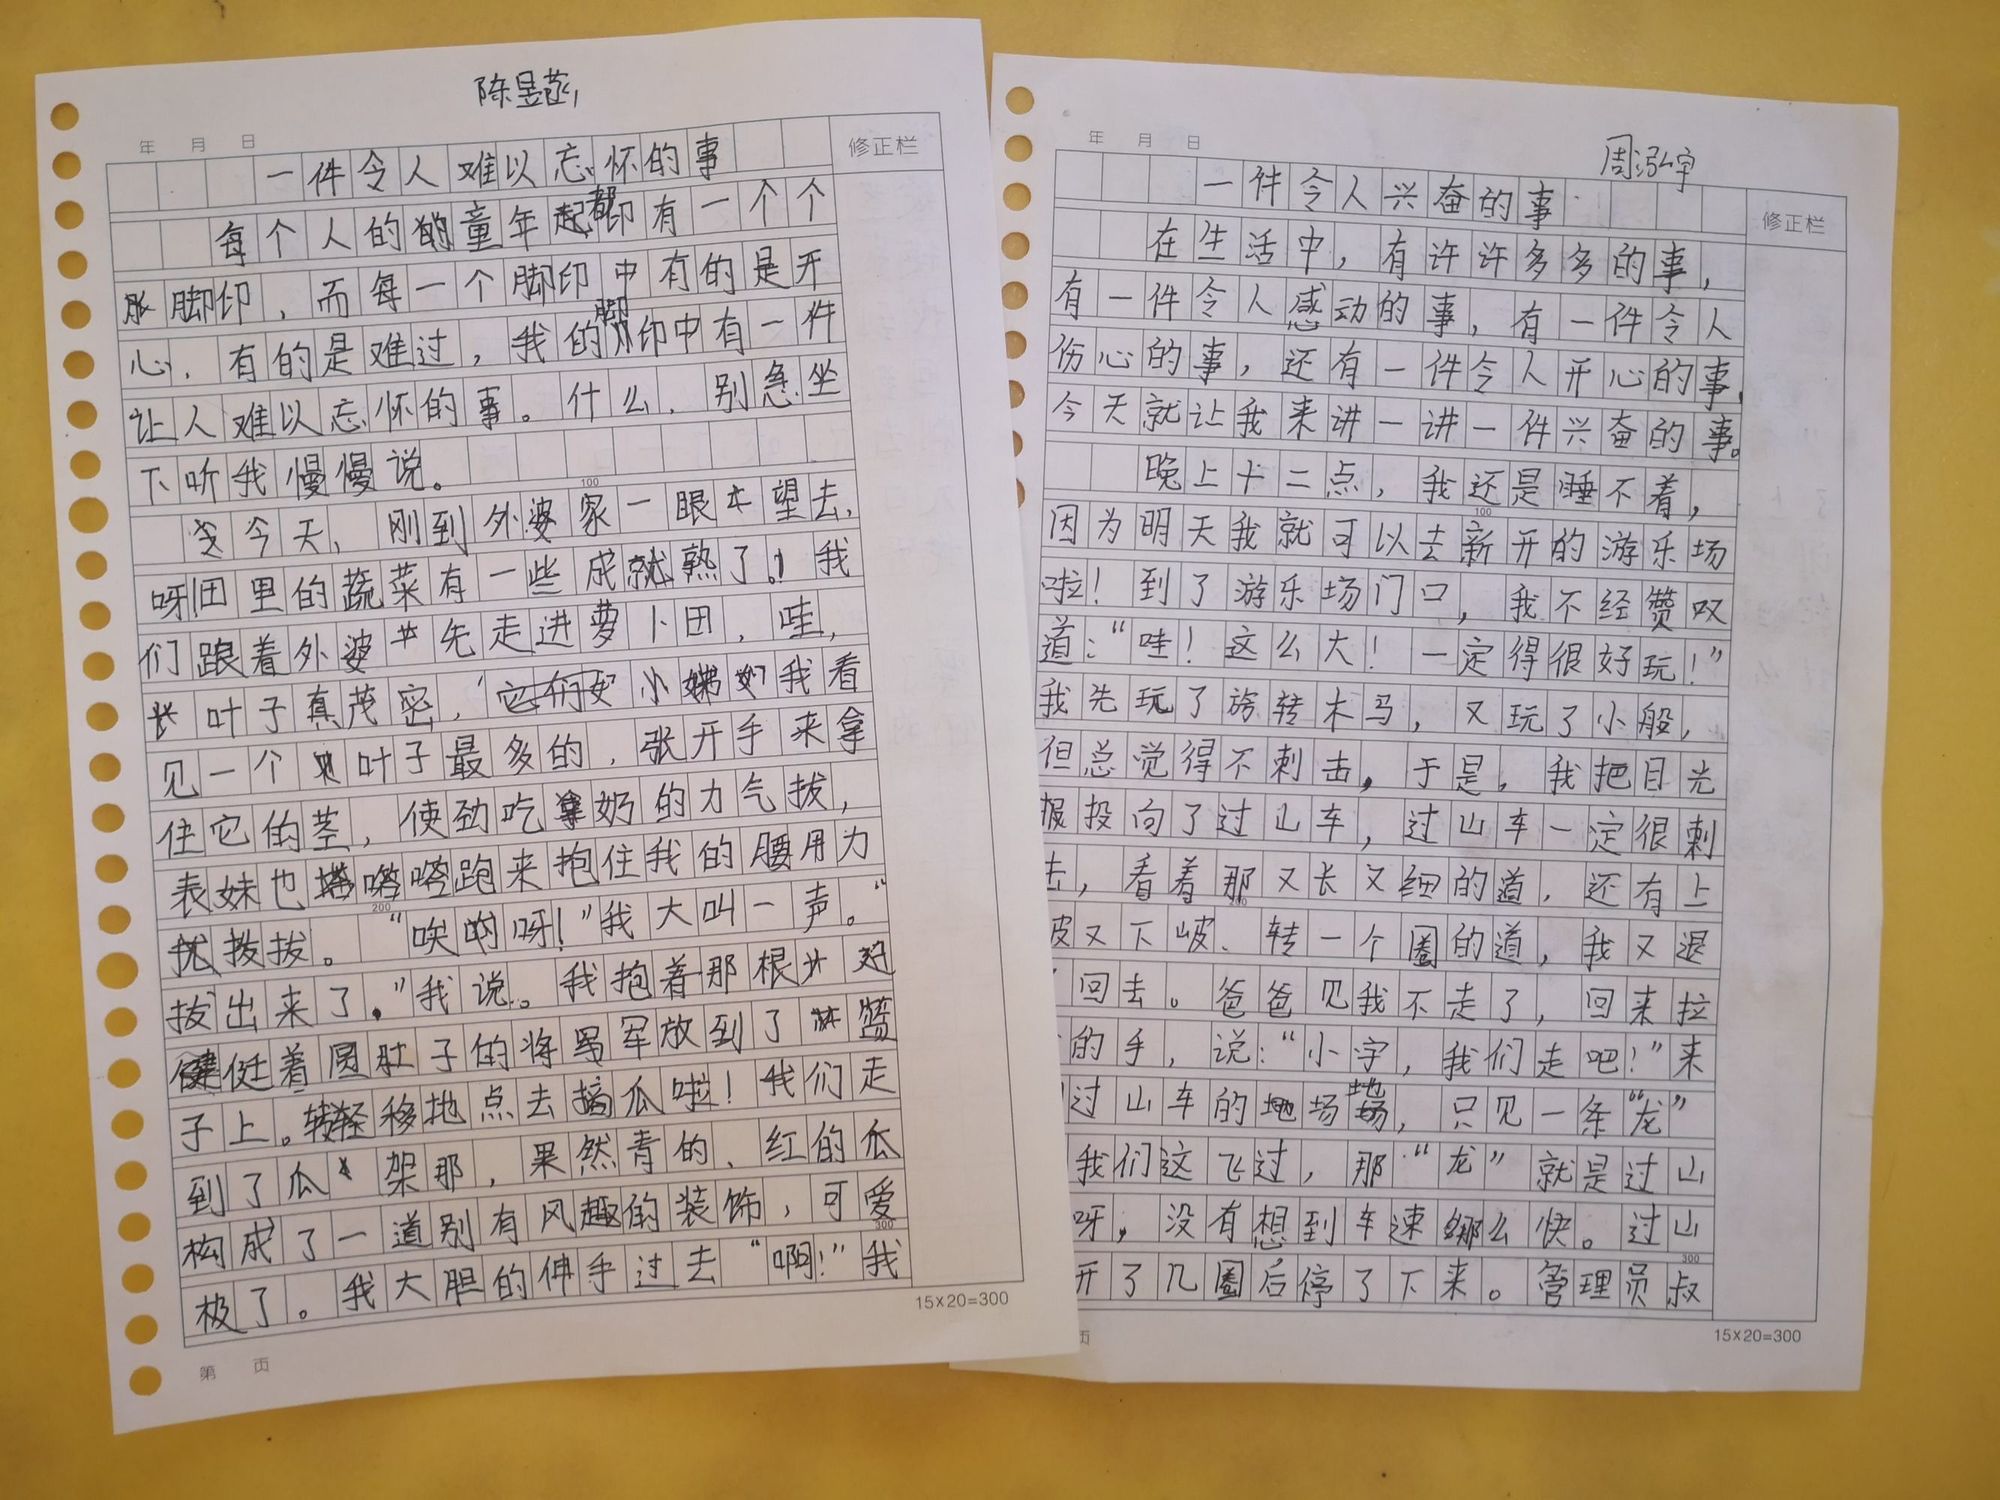 陈昱燕
年 月 日
修正栏
一件令人难以忘怀的事
每个人的童年都印有一个个
脚印，而每一个脚印中有的是开
心，有的是难过，我的脚印中有一件
让人难以忘怀的事。什么，别急坐
下听我慢慢说。
100
今天，刚到外婆家一眼望去，
呀田里的蔬菜有一些成就熟了！我
们跟着外婆先走进萝卜田，哇，
叶子真茂密，我看
见一个叶子最多的，张开手来拿
住它的茎，使劲吃奶的力气拔，
表妹也嗒嗒跑来抱住我的腰用力
200
拔。“唉呀！”我大叫一声。“
拔出来了。”我说。我抱着那根
挺着圆肚子的将军放到了篮
子上。转移地点去摘瓜啦！我们走
到了瓜架那，果然青的、红的瓜
构成了一道别有风趣的装饰，可爱
300
极了。我大胆的伸手过去“啊！”我
15×20=300
第 页
年 月 日
周泓宇
修正栏
一件令人兴奋的事
在生活中，有许许多多的事，
有一件令人感动的事，有一件令人
伤心的事，还有一件令人开心的事，
今天就让我来讲一讲一件兴奋的事。
晚上十二点，我还是睡不着，
100
因为明天我就可以去新开的游乐场
啦！到了游乐场门口，我不经赞叹
道：“哇！这么大！一定得很好玩！”
我先玩了旋转木马，又玩了小船，
但总觉得不刺击，于是，我把目光
投向了过山车，过山车一定很刺
击，看着那又长又细的道，还有上
坡又下岥、转一个圈的道，我又退
回去。爸爸见我不走了，回来拉
的手，说：“小宇，我们走吧！”来
过山车的场地，只见一条“龙”
我们这飞过，那“龙”就是过山
呀，没有想到车速那么快。过山
300
开了几圈后停了下来。管理员叔
15×20=300
页